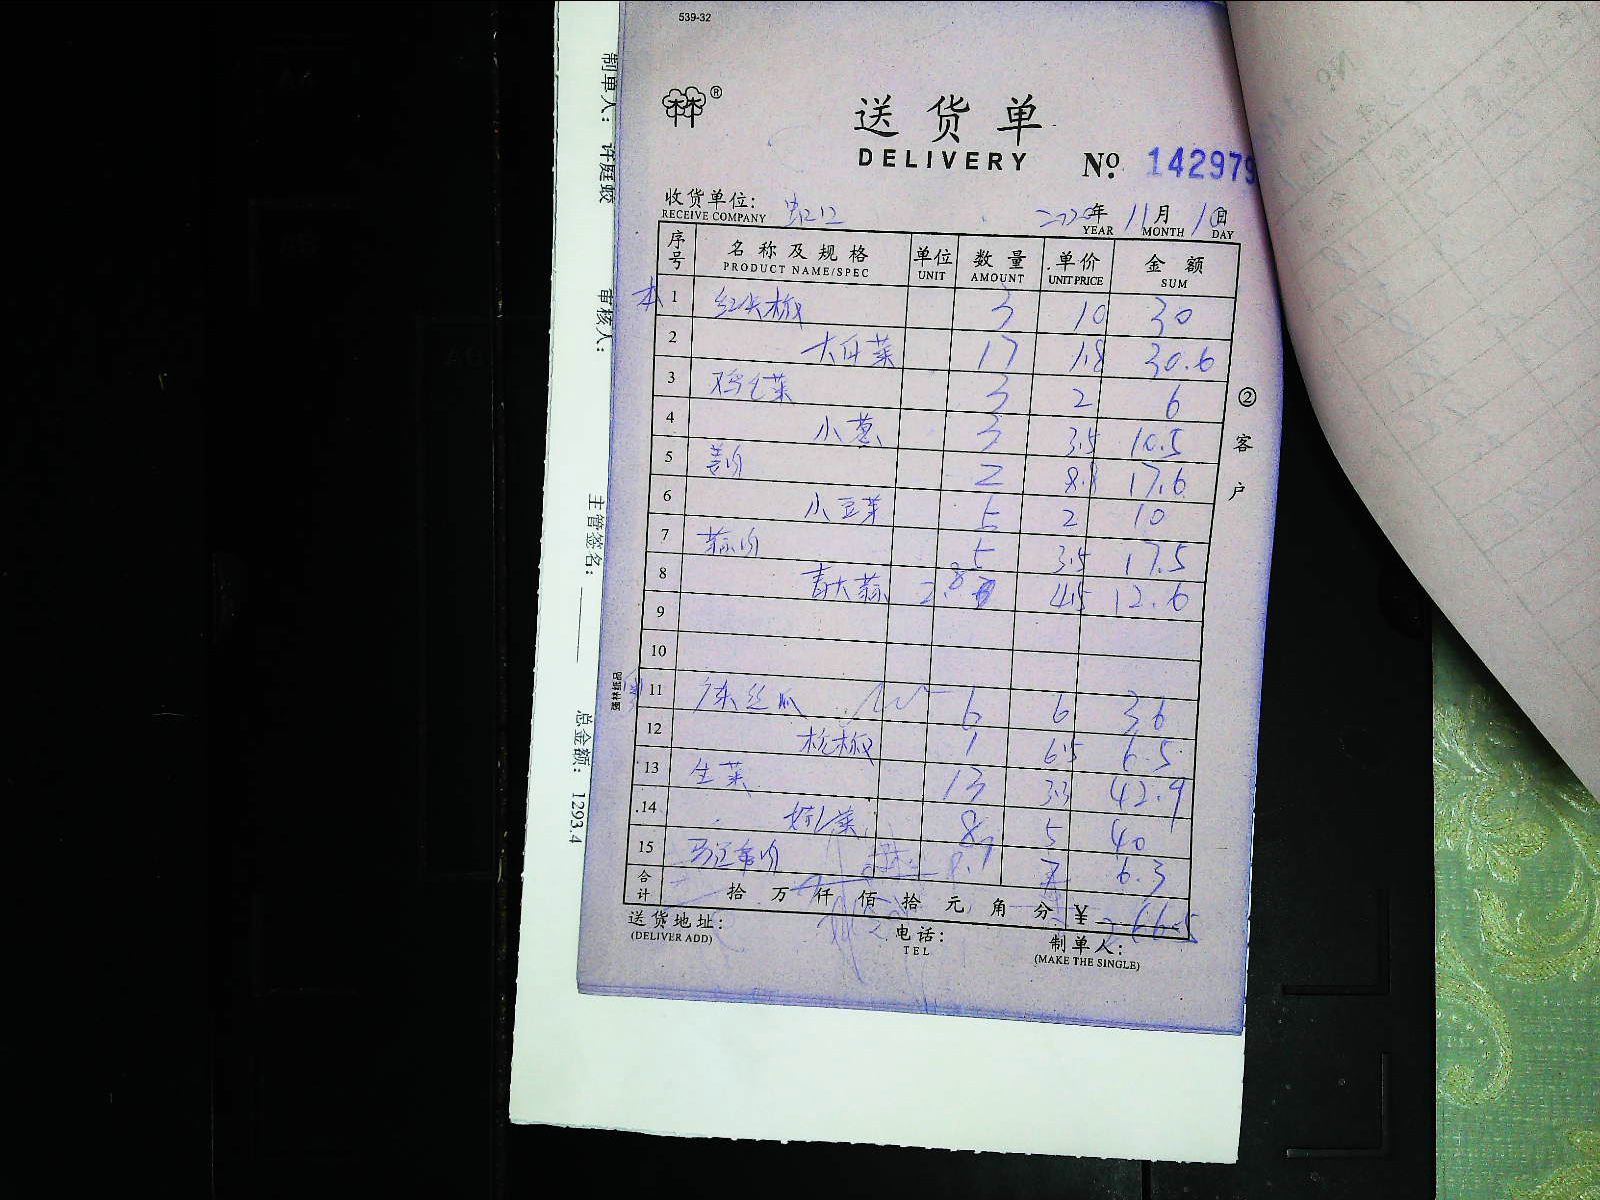 539-32
林林®
送货单
DELIVERY No. 142979
收货单位: 虹口
RECEIVE COMPANY
2020年 11月 1日
YEAR MONTH DAY
序号 名称及规格 单位 数量 单价 金额
PRODUCT NAME/SPEC UNIT AMOUNT UNIT PRICE SUM
本 1 红尖椒 3 10 30
2 大白菜 17 1.8 30.6
3 鸡毛菜 3 2 6
4 小葱 3 3.5 10.5
5 姜 2 8.8 17.6
6 小豆芽 5 2 10
7 蒜 5 3.5 17.5
8 青大蒜 2.8 4.5 12.6
9
10
11 广东丝瓜 6 6 36
12 杭椒 1 6.5 6.5
13 生菜 13 3.3 42.9
14 8 5 40
15 7 6.3
合计 拾 万 仟 佰 拾 元 角 分 ¥ 266.5
送货地址: 电话: 制单人:
(DELIVER ADD) TEL (MAKE THE SINGLE)
②客户
强林纸品
制单人: 许庭蛟
审核人:
主管签名:
总金额: 1293.4